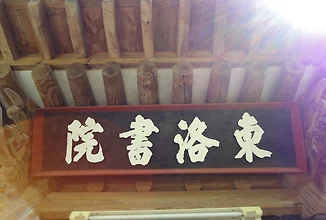 東洛書院